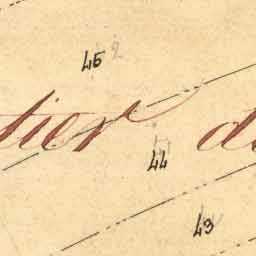 45 2
tier d
44
43